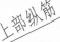 上部纵筋